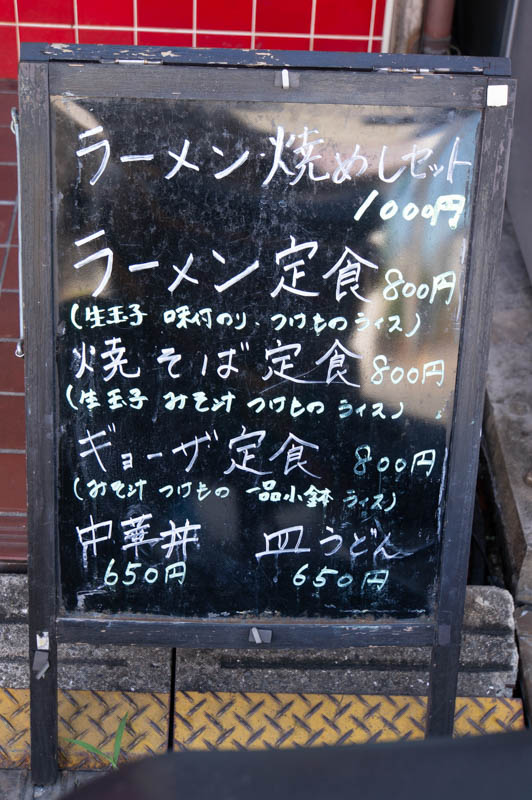 ラーメン 焼めしセット
1000円
ラーメン 定食 800円
(生玉子 味付のり、つけもの ライス)
焼そば 定食 800円
(生玉子 みそ汁 つけもの ライス)
ギョーザ 定食 800円
(みそ汁 つけもの 一品小鉢 ライス)
中華丼 皿うどん
650円 650円